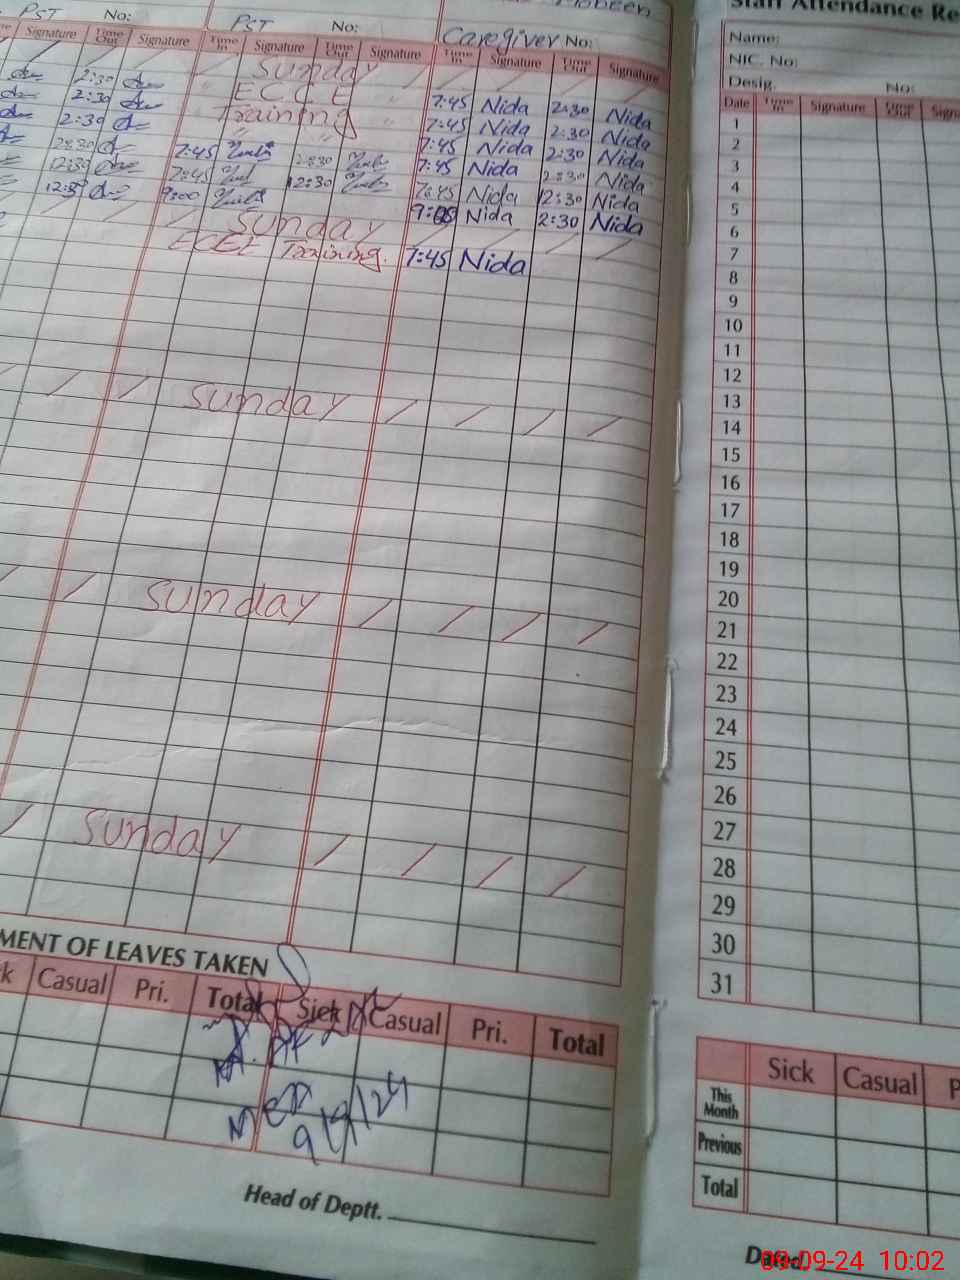 Mobeen
PST No: PST No: Caregiver No:
Signature Time Out Signature Time In Signature Time Out Signature Time In Signature Time Out Signature
Sunday
2:30 ECCE 7:45 Nida 2:30 Nida
2:30 Training 7:45 Nida 2:30 Nida
2:30 " 7:45 Nida 2:30 Nida
2:30 7:45 2:30 7:45 Nida 2:30 Nida
12:30 7:45 12:30 7:45 Nida 12:30 Nida
12:30 9:00 9:00 Nida 2:30 Nida
Sunday
ECCE Training. 7:45 Nida
Sunday
Sunday
Sunday
MENT OF LEAVES TAKEN
Casual Pri. Total Sick Casual Pri. Total
MEA
9/9/24
Head of Deptt.
Staff Attendance Re
Name:
NIC. No:
Desig. No:
Date Time In Signature Time Out
1
2
3
4
5
6
7
8
9
10
11
12
13
14
15
16
17
18
19
20
21
22
23
24
25
26
27
28
29
30
31
Sick Casual P
This Month
Previous
Total
Dated
09-09-24 10:02